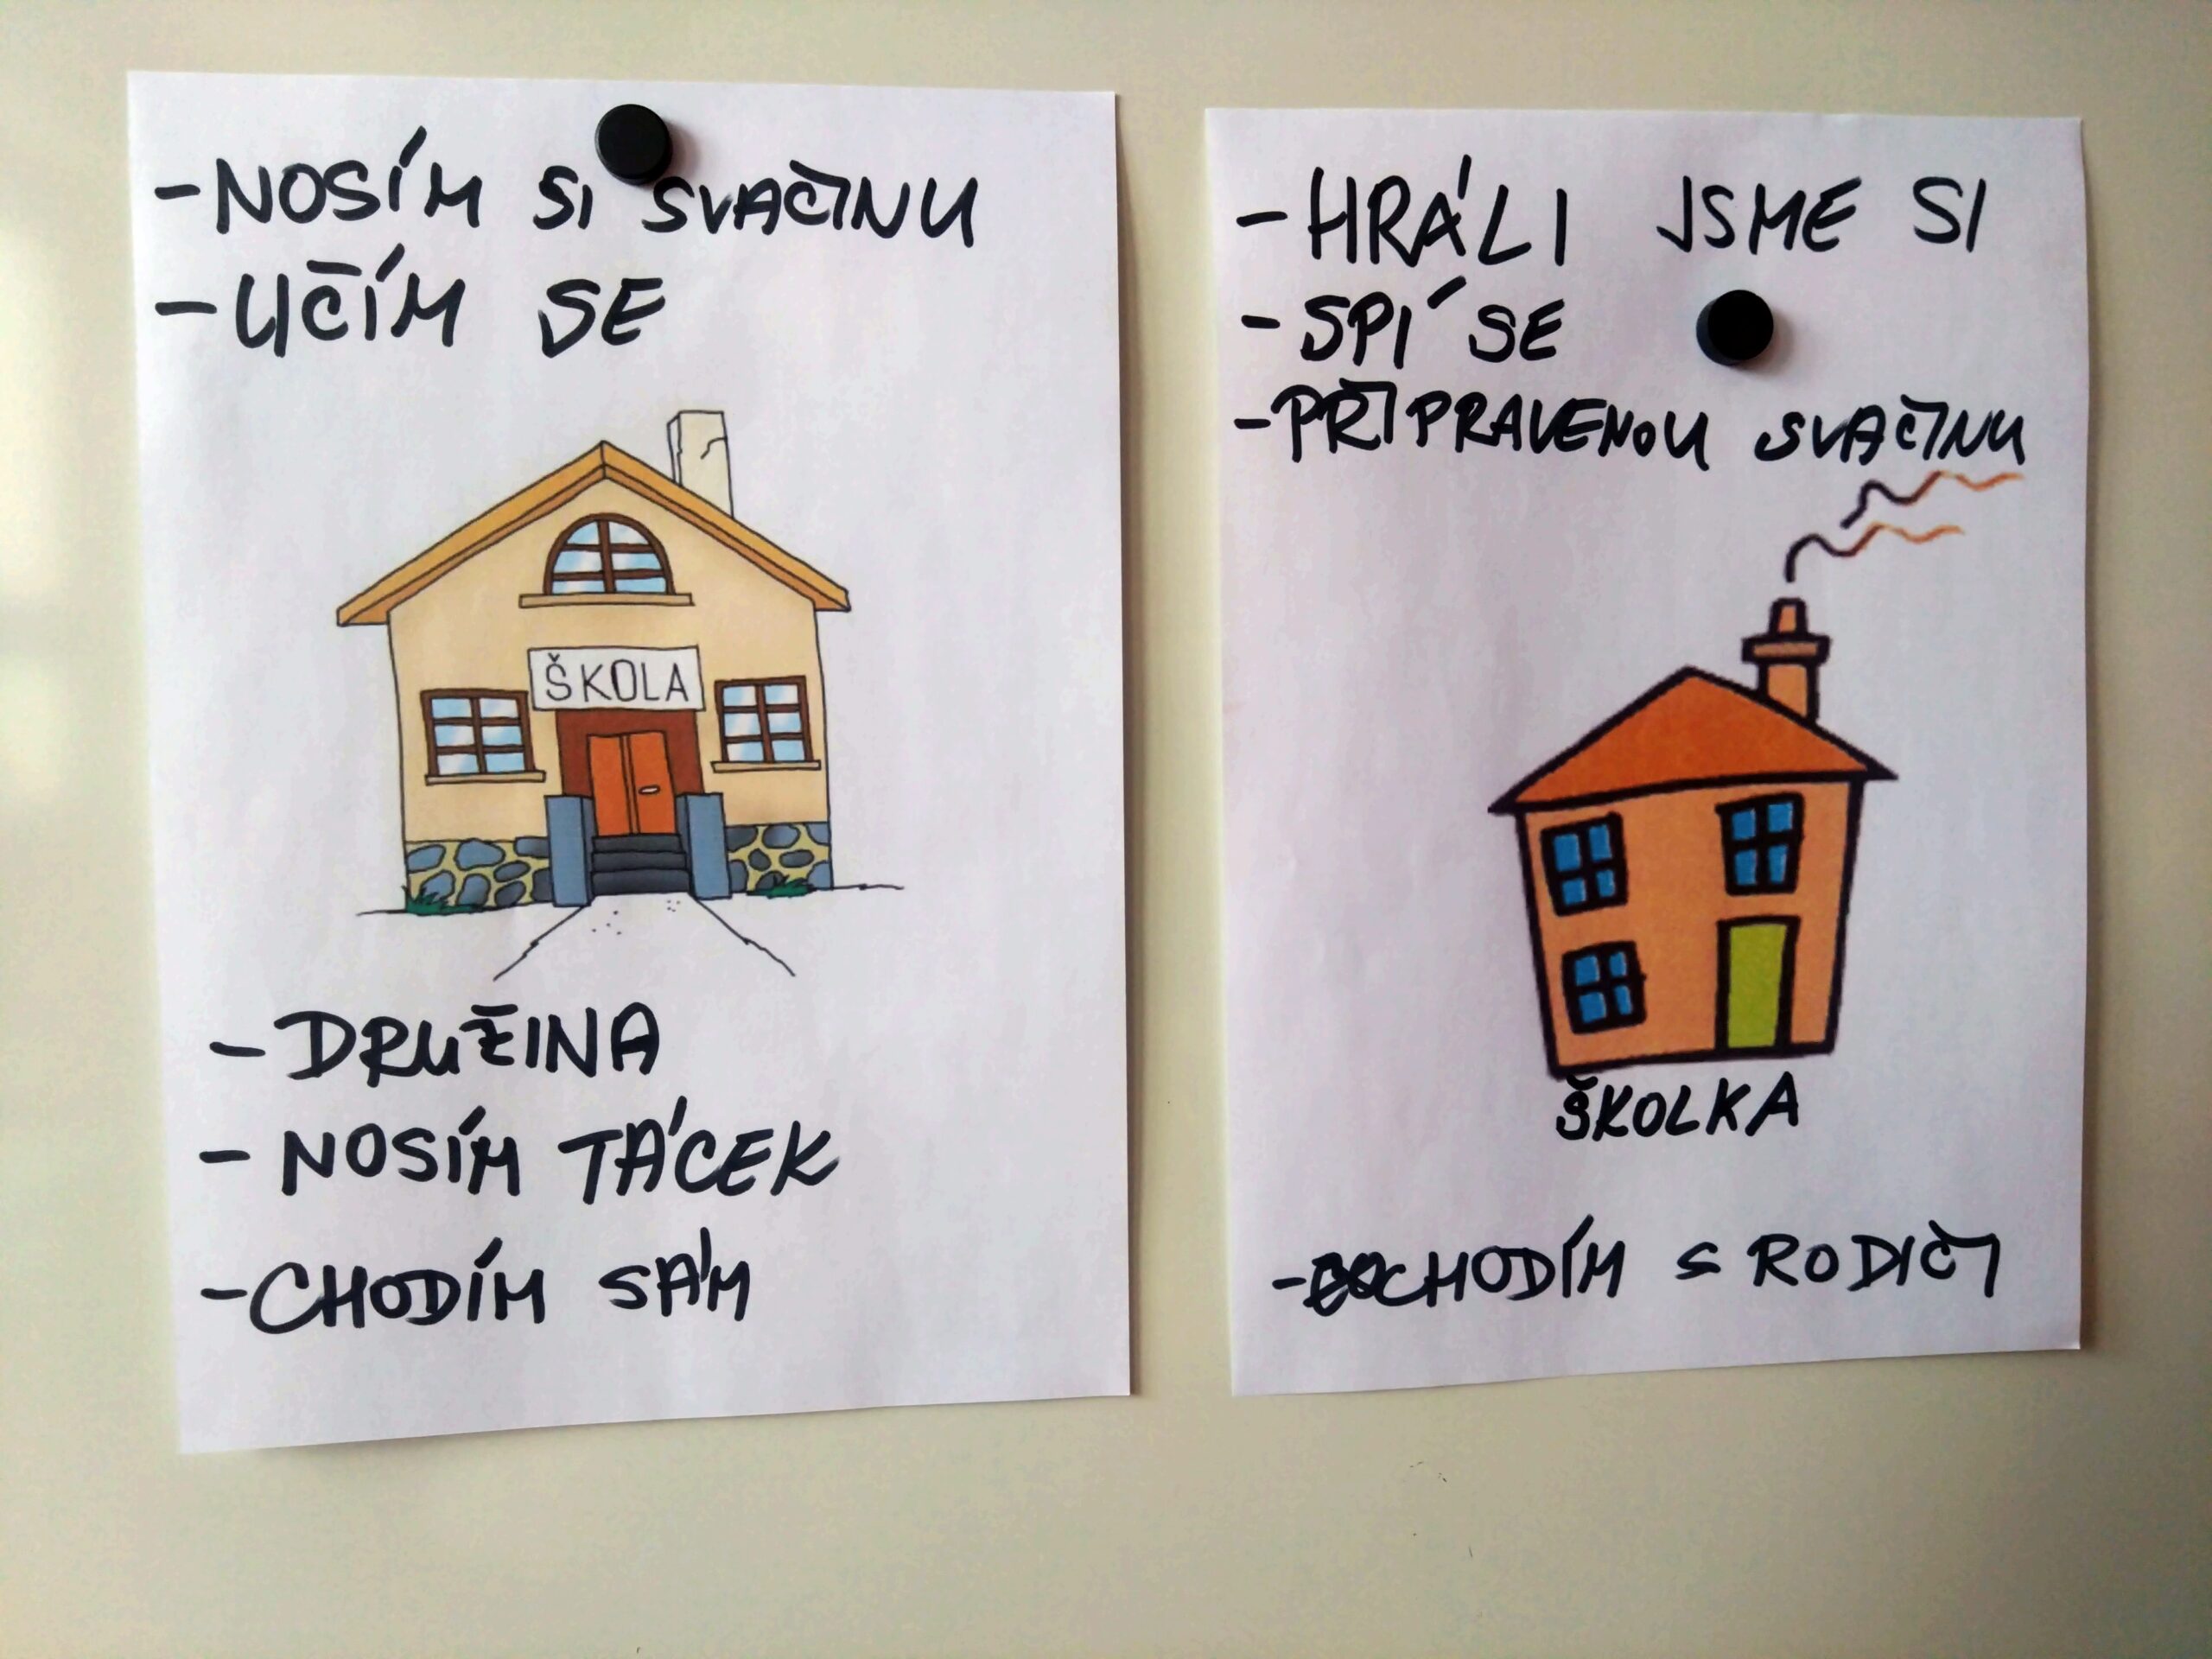 - NOSÍM SI SVAČINU
- UČÍM SE
ŠKOLA
- DRUŽINA
- NOSÍM TÁCEK
- CHODÍM SÁM
- HRÁLI JSME SI
- SPÍ SE
- PŘIPRAVENOU SVAČINU
ŠKOLKA
- CHODÍM S RODIČI